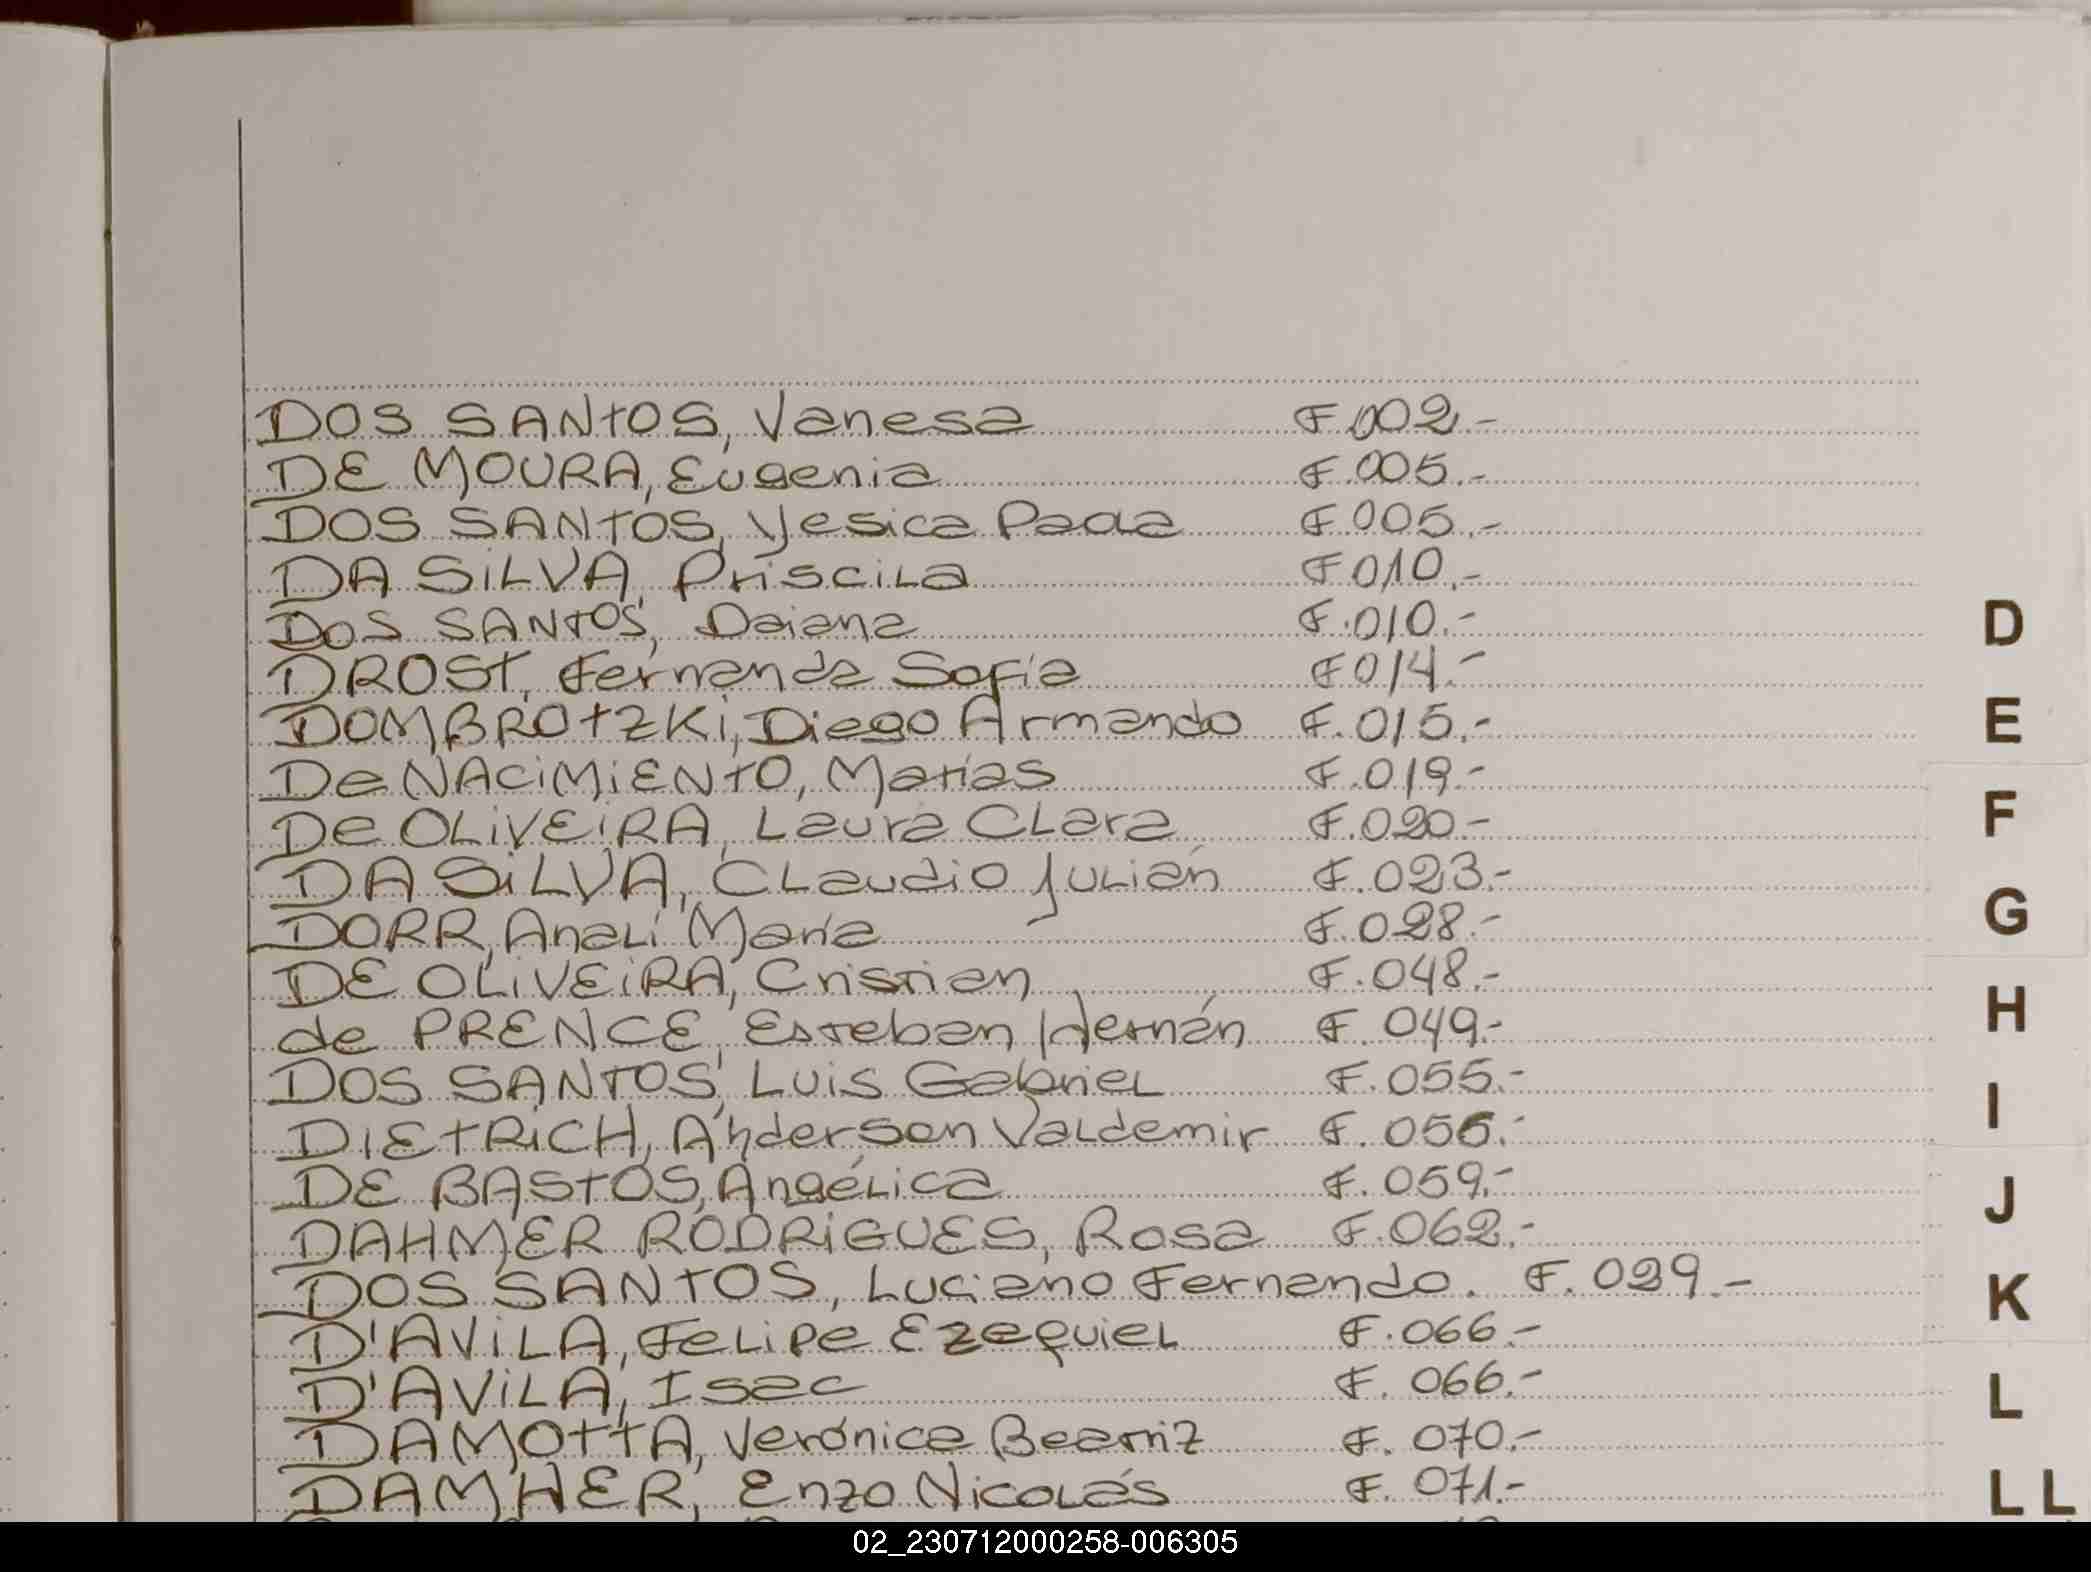 DOS SANTOS, Vanesa F.002.-
DE MOURA, Eugenia F.005.-
DOS SANTOS, Yesica Paola F.005.-
DA SILVA, Priscila F010.-
DOS SANTOS, Daiana F.010.-
DROST, Fernanda Sofía F014.-
DOMBROTZKi, Diego Armando F.015.-
De NACiMiENTO, Matías F.019.-
De OLiVEiRA, Laura Clara F.020.-
DA SiLVA, Claudio Julián F.023.-
DORR, Analí María F.028.-
DE OLiVEiRA, Cristian F.048.-
de PRENCE, Esteban Hernán F.049.-
DOS SANTOS, Luis Gabriel F.055.-
DIETRICH, Anderson Valdemir F.056.-
DE BASTOS, Angélica F.059.-
DAHMER RODRiGUES, Rosa F.062.-
DOS SANTOS, Luciano Fernando. F.029.-
D'AViLA, Felipe Ezequiel F.066.-
D'AViLA, Isac F.066.-
DAMOTTA, Verónica Beatriz F.070.-
DAMHER, Enzo Nicolás F.071.-
D
E
F
G
H
I
J
K
L
LL
02_230712000258-006305